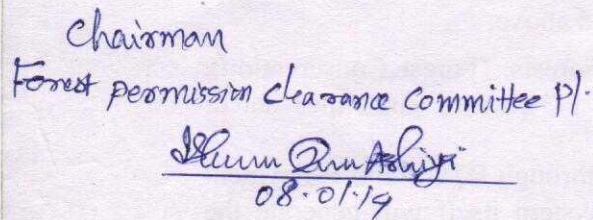 Chairman
Forest permission clearance committee P/.
08.01.19